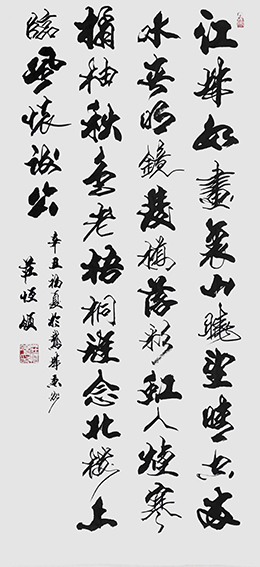 江城如畫裏山曉望晴空兩
水夾明鏡雙橋落彩虹人煙寒
橘柚秋色老梧桐誰念北樓上
臨風懷謝公
辛丑夏於